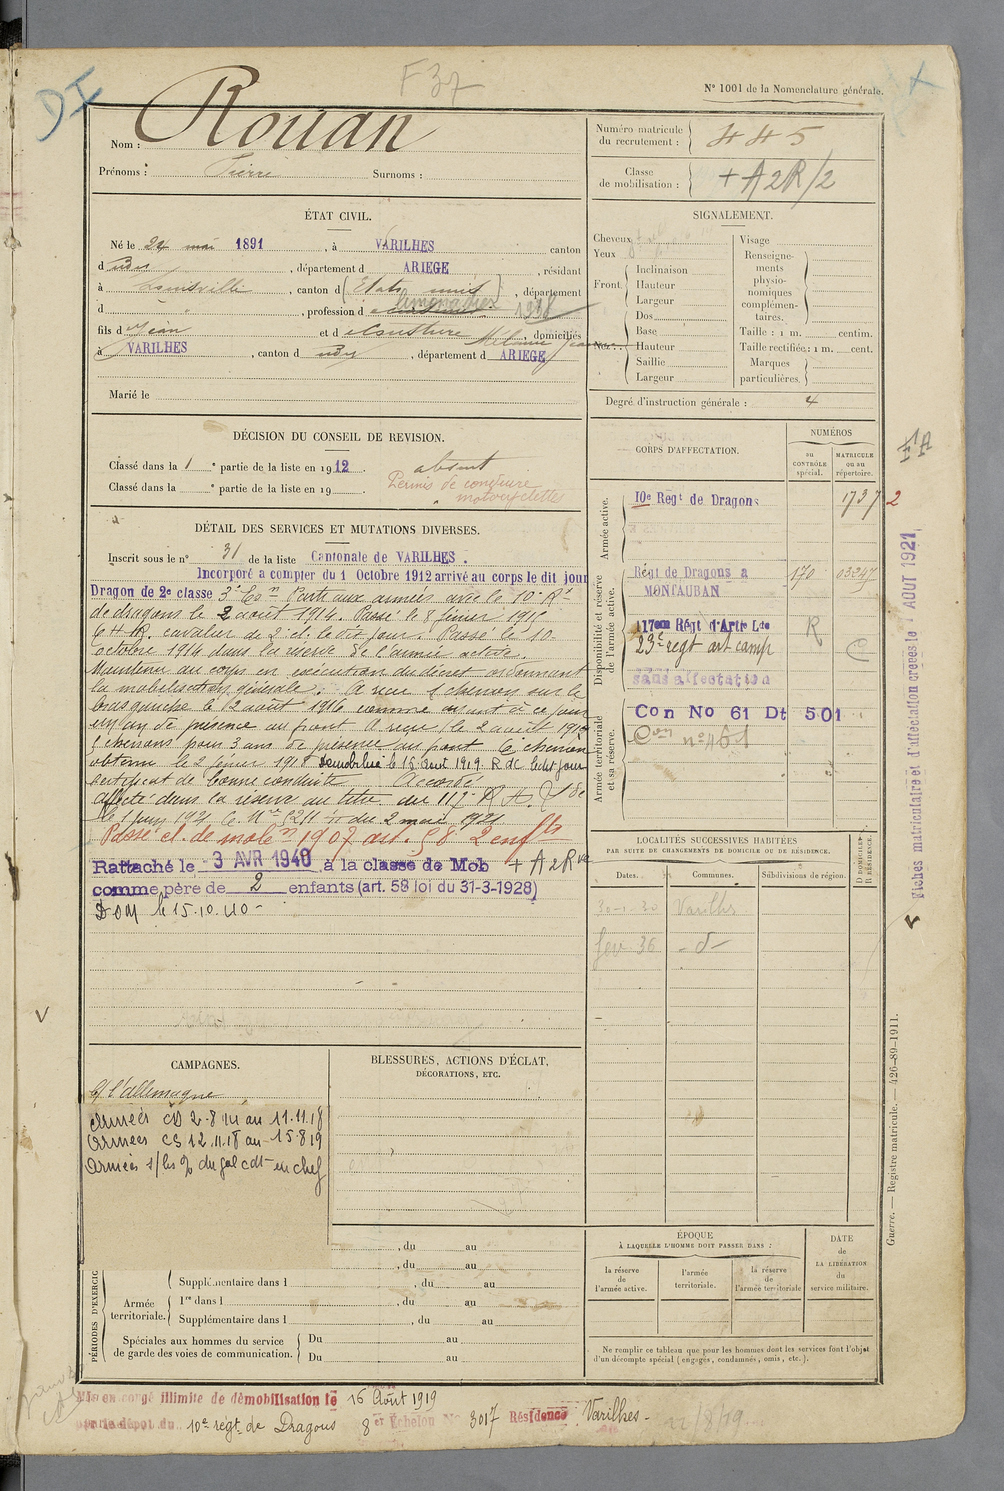 DI
F 37
N° 1001 de la Nomenclature générale.
Nom : Rouan
Prénoms : Pierre Surnoms :
Numéro matricule du recrutement : 445
Classe de mobilisation : + A2R/2
ÉTAT CIVIL.
Né le 24 mai 1891, à VARILHES canton
d udy, département d ARIEGE, résidant
à Louisville, canton d (Etats unis), département
d , profession d limonadier 1938
fils d Jean et d Mélanie, domiciliés
à VARILHES, canton d udy, département d ARIEGE
Marié le
SIGNALEMENT.
Cheveux
Yeux
Front. Inclinaison
Hauteur
Largeur
Nez. Dos
Base
Hauteur
Saillie
Largeur
Visage
Renseignements physionomiques complémentaires.
Taille : 1 m. centim.
Taille rectifiée : 1 m. cent.
Marques particulières.
Degré d'instruction générale : 4
DÉCISION DU CONSEIL DE REVISION.
Classé dans la 1e partie de la liste en 1912. absent
Classé dans la e partie de la liste en 19 .
Permis de conduire
" motocyclettes
DÉTAIL DES SERVICES ET MUTATIONS DIVERSES.
Inscrit sous le n° 31 de la liste Cantonale de VARILHES.
Incorporé a compter du 1 Octobre 1912 arrivé au corps le dit jour
Dragon de 2e classe 3e Con Parti aux armées avec le 10e Rt
de dragons le 2 août 1914. Passé le 8 février 1915
cavalier de 2e cl. le dit jour. Passé le 10
octobre 1914 dans la réserve de l'armée active.
Maintenu au corps en exécution du décret ordonnant
la mobilisation générale. A reçu 1 chevron sur le
bras gauche le 12 août 1916 comme ayant à ce jour
un an de présence au front. A reçu le 2 août 191
chevrons pour 3 ans de présence au front 6e chevron
obtenu le 2 février 1918 Démobilisé le 16 Août 1919. R dC le dit jour
certificat de bonne conduite Accordé
Affecté dans la réserve au titre du 117e R A L
le 1 juin 1921 C. Mle 5211 du 2 mai 1921
Passé cl. de mobn 1907 art. 58 2 enfts
Rattaché le 3 AVR 1940 à la classe de Mob + A2Rve
comme père de 2 enfants (art. 58 loi du 31-3-1928)
DOM le 15.10.40 -
CORPS D'AFFECTATION.
NUMÉROS
au contrôle spécial.
MATRICULE ou au répertoire.
Armée active.
10e Regt de Dragons 1737 2
Disponibilité et réserve de l'armée active.
Régt de Dragons a MONTAUBAN 170 03247
117eme Régt d'Artie Lde R
23e regt art camp
sans affectation
Armée territoriale et sa réserve.
Con No 61 Dt 501
LOCALITÉS SUCCESSIVES HABITÉES
PAR SUITE DE CHANGEMENTS DE DOMICILE OU DE RÉSIDENCE.
Dates. Communes. Subdivisions de région. D DOMICILE. R RÉSIDENCE.
30-1-30 Varilhes
fev 36 - d° -
Fiches matriculaire et d'affectation creees le AOUT 1921
CAMPAGNES.
c/ l'allemagne
Armées CD 2-8-14 au 11.11.18
Armées CS 12.11.18 au 15-8-19
Armées s/ les o/ du gal cdt en chef
BLESSURES, ACTIONS D'ÉCLAT,
DÉCORATIONS, ETC.
PÉRIODES D'EXERCIC
, du au
, du au
Supplémentaire dans l , du au
Armée territoriale. 1re dans l , du au
Supplémentaire dans l , du au
Spéciales aux hommes du service de garde des voies de communication. Du au
Du au
ÉPOQUE
À LAQUELLE L'HOMME DOIT PASSER DANS :
la réserve de l'armée active.
l'armée territoriale.
la réserve de l'armée territoriale
DATE de LA LIBÉRATION du service militaire.
Ne remplir ce tableau que pour les hommes dont les services font l'objet
d'un décompte spécial (engagés, condamnés, omis, etc.).
Guerre. — Registre matricule. — 426-89-1911.
Mis en congé illimité de démobilisation le 16 Août 1919
par le dépôt du 10e régt de Dragons 8e Échelon No 3017 Résidence Varilhes - 22/8/19